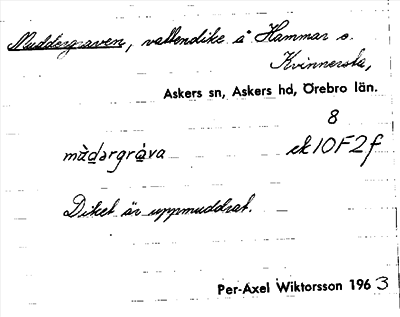 Muddergraven, vattendike å Hammar o.
Kvinnersta,
Askers sn, Askers hd, Örebro län.
8
mùdərgràva ek 10F2f
Diket är uppmuddrat.
Per-Axel Wiktorsson 1963